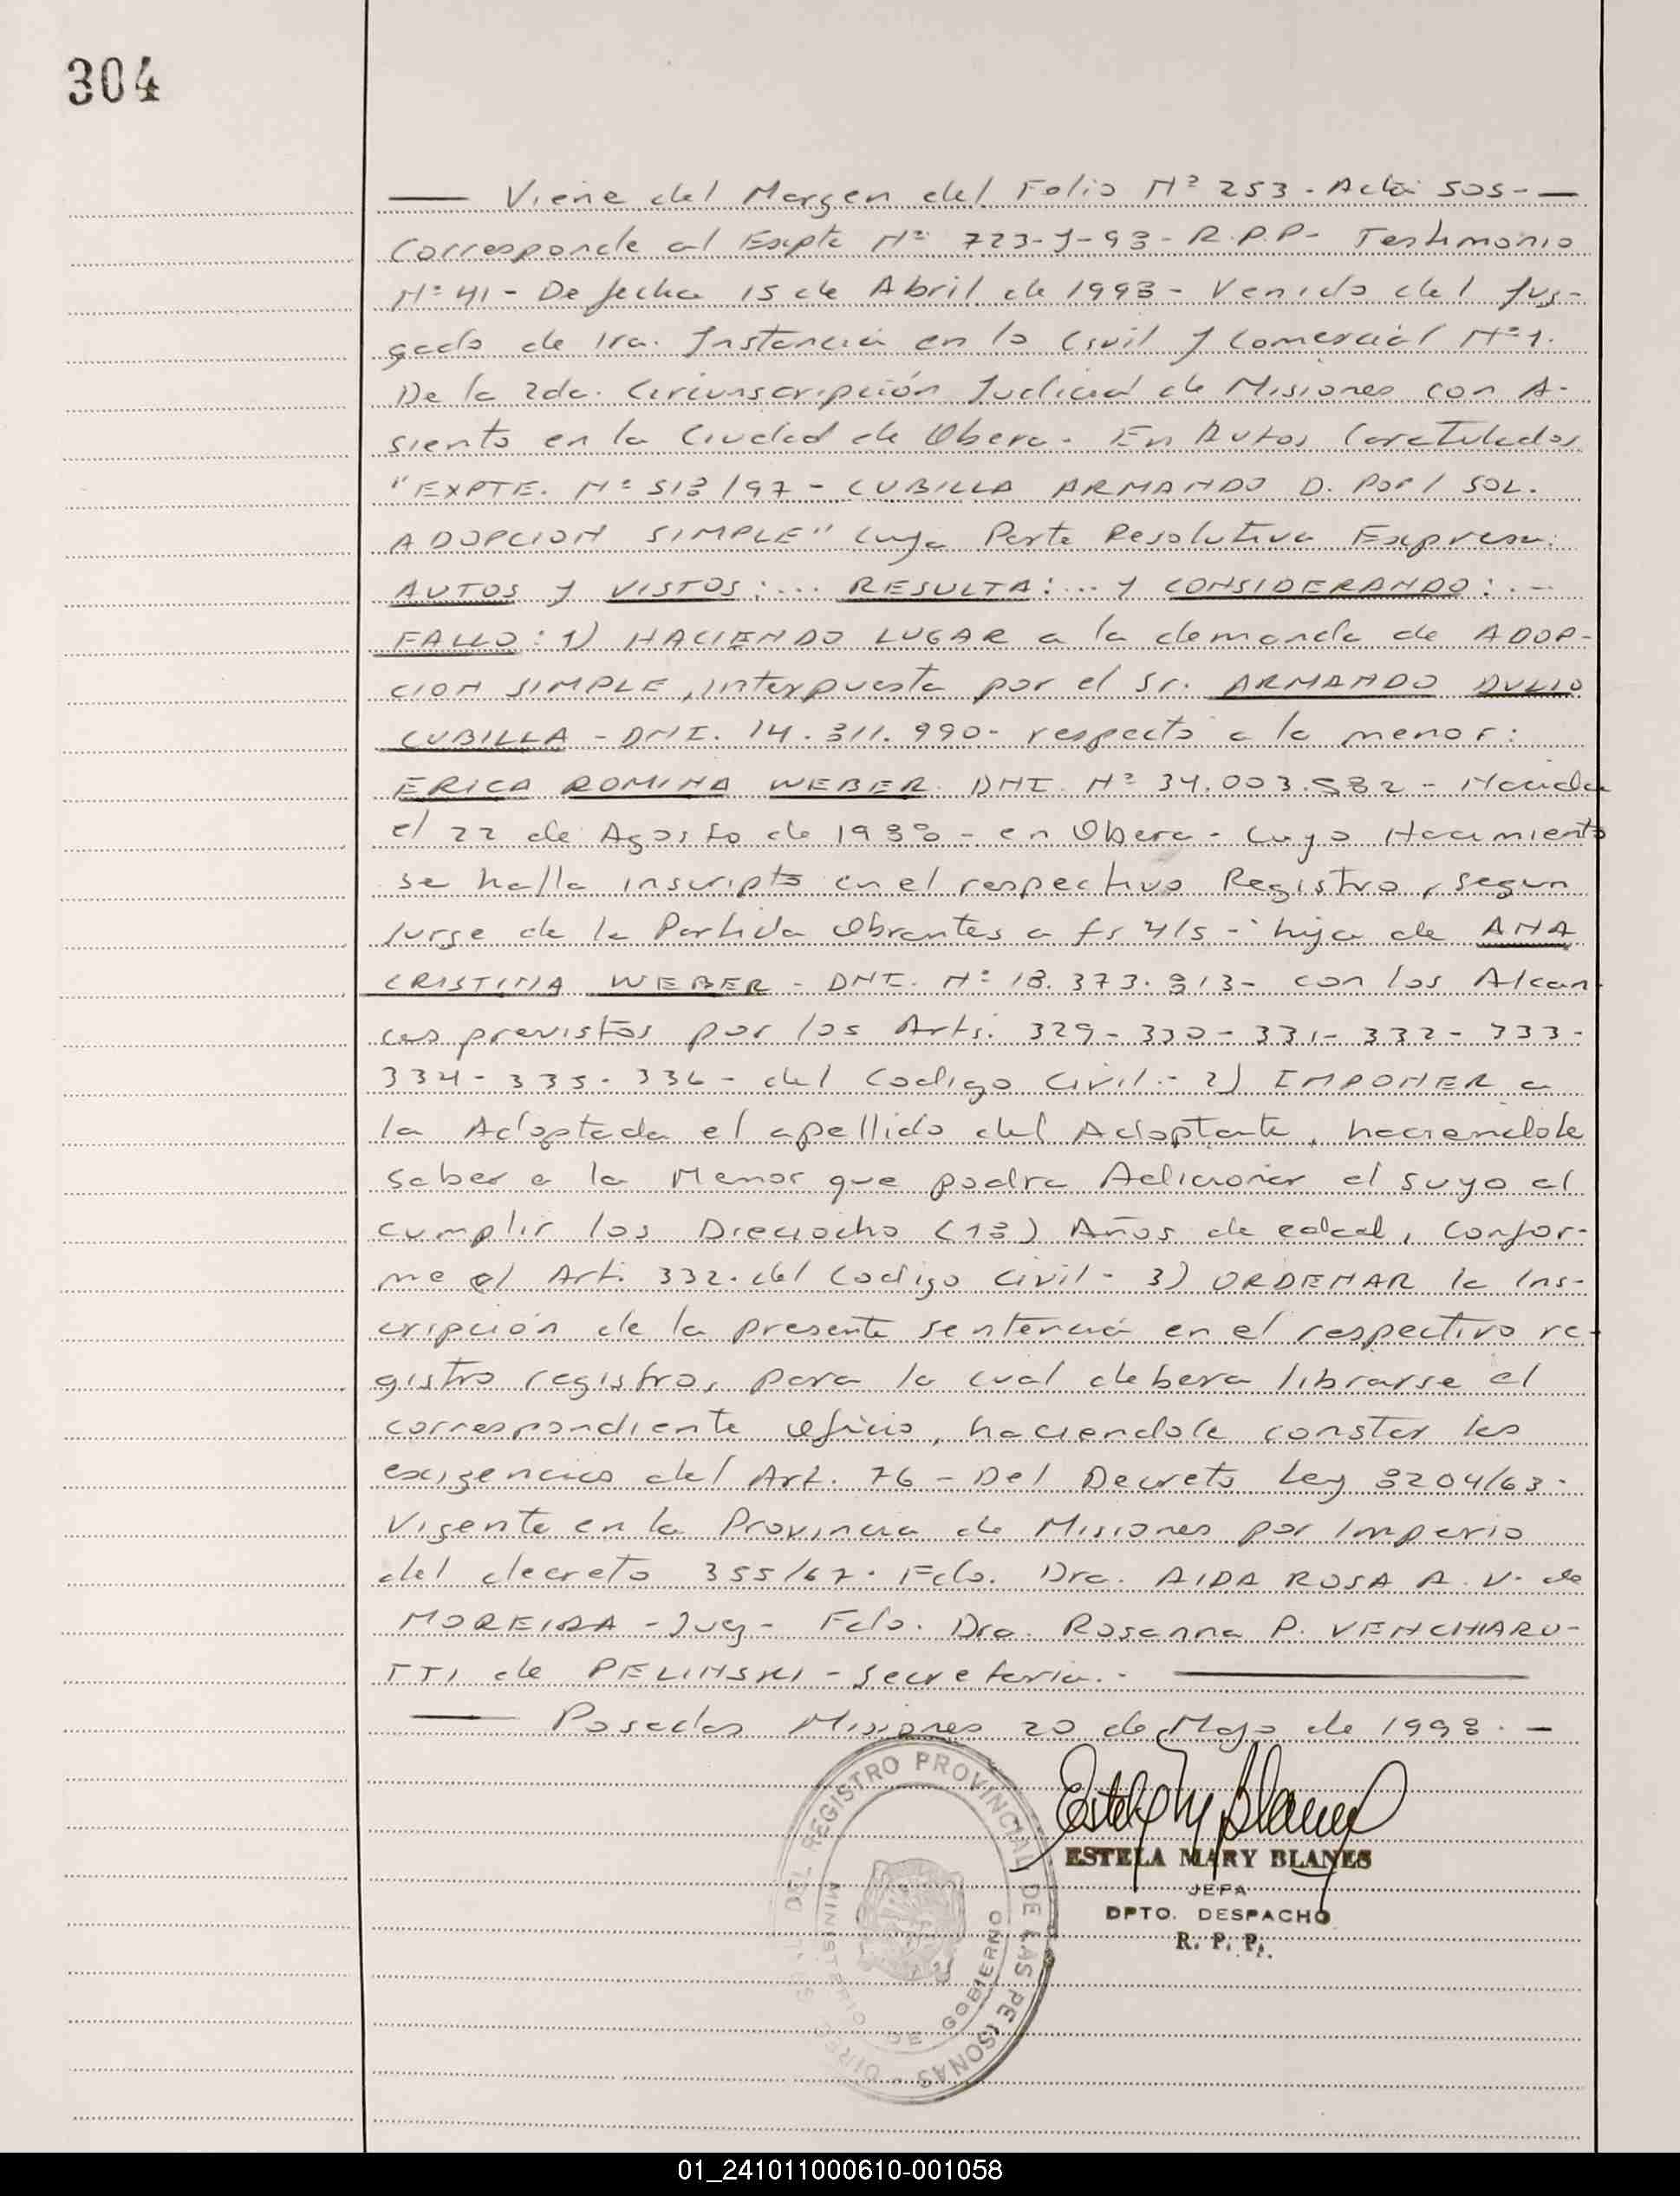 304
— Viene del Margen del Folio Nº 253 - Acta 505 - —
Corresponde al Expte Nº 723-J-93 - R.P.P - Testimonio
Nº 41 - De fecha 15 de Abril de 1998 - Venido del Juz-
gado de 1ra. Instancia en lo Civil y Comercial Nº 1.
De la 2da. Circunscripción Judicial de Misiones con A-
siento en la Ciudad de Obera - En Autos Caratulados
"EXPTE. Nº 513/97 - CUBILLA ARMANDO D. Por / SOL.
ADOPCION SIMPLE" Cuya Parte Resolutiva Expresa:
AUTOS Y VISTOS: ... RESULTA: ... Y CONSIDERANDO: . -
FALLO: 1) HACIENDO LUGAR a la demanda de ADOP-
CION SIMPLE, interpuesta por el Sr. ARMANDO DULIO
CUBILLA - DNI. 14.311.990 - respecto a la menor:
ERICA ROMINA WEBER DNI. Nº 34.003.582 - Nacida
el 22 de Agosto de 1988 - en Obera - Cuyo Nacimiento
se halla inscripto en el respectivo Registro, segun
surge de la Partida Obrantes a fs 4/5 - hija de ANA
CRISTINA WEBER - DNI. Nº 18.373.813 - con los Alcan-
ces previstos por los Arts. 329 - 330 - 331 - 332 - 333 -
334 - 335 - 336 - del Codigo Civil - 2) IMPONER a
la Adoptada el apellido del Adoptante, haciendole
saber a la Menor que podra Adicionar el suyo al
cumplir los Dieciocho (18) Años de edad, Confor-
me el Art. 332 del Codigo Civil - 3) ORDENAR la Ins-
cripción de la presente sentencia en el respectivo re-
gistro registros, para lo cual debera librarse el
correspondiente oficio, haciendole constar las
exigencias del Art. 76 - Del Decreto Ley 8204/63 -
Vigente en la Provincia de Misiones por Imperio
del decreto 355/67. Fdo. Dra. AIDA ROSA A. V. de
MOREIRA - Juez - Fdo. Dra. Rosanna P. VENCHIARU-
TTI de PELINSKI - Secretaria. - —
— Posadas Misiones 20 de Mayo de 1998. —
DEL REGISTRO PROVINCIAL DE LAS PERSONAS
MINISTERIO DE GOBIERNO
ESTELA MARY BLANES
JEFA
DPTO. DESPACHO
R. P. P.
01_241011000610-001058